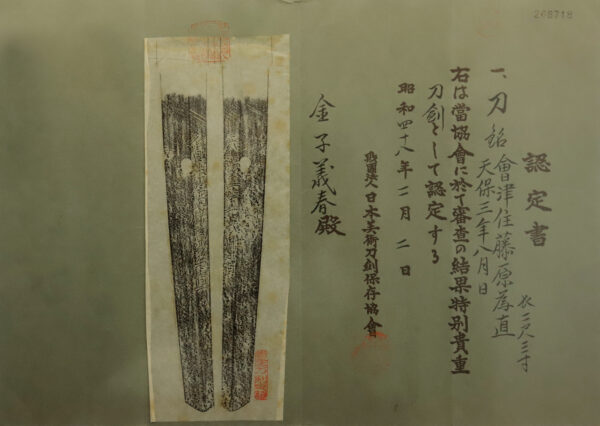 268718
認定書
一、刀 銘 會津住藤原為直
天保三年八月日
長二尺三寸
右は當協會に於て審査の結果特別貴重
刀剣として認定する
昭和四十八年二月二日
財團法人日本美術刀剣保存協會
金子義春殿